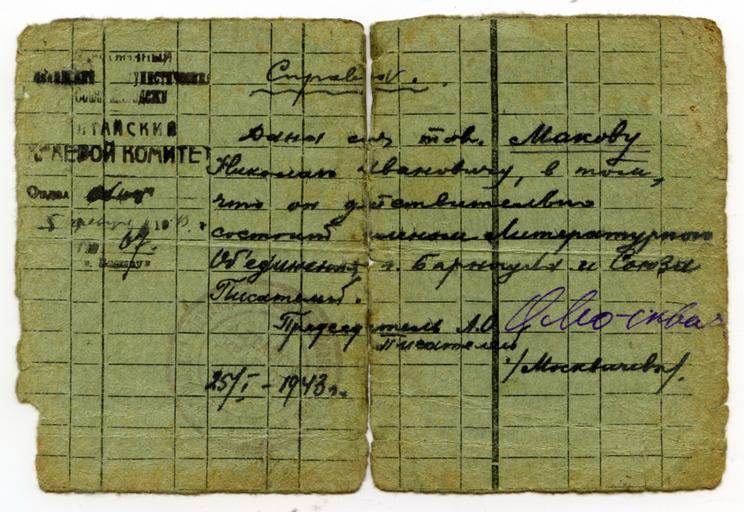 АЛТАЙСКИЙ
КРАЕВОЙ КОМИТЕТ
Отдел
67
Справка.
Дана сия тов. Макову
Николаю Ивановичу, в том,
что он действительно
состоит членом Литературного
Объединения г. Барнаула и Союза
Писателей.
Председатель Л.О.
Писателей
/Москвичева/.
25/I - 1943 г.